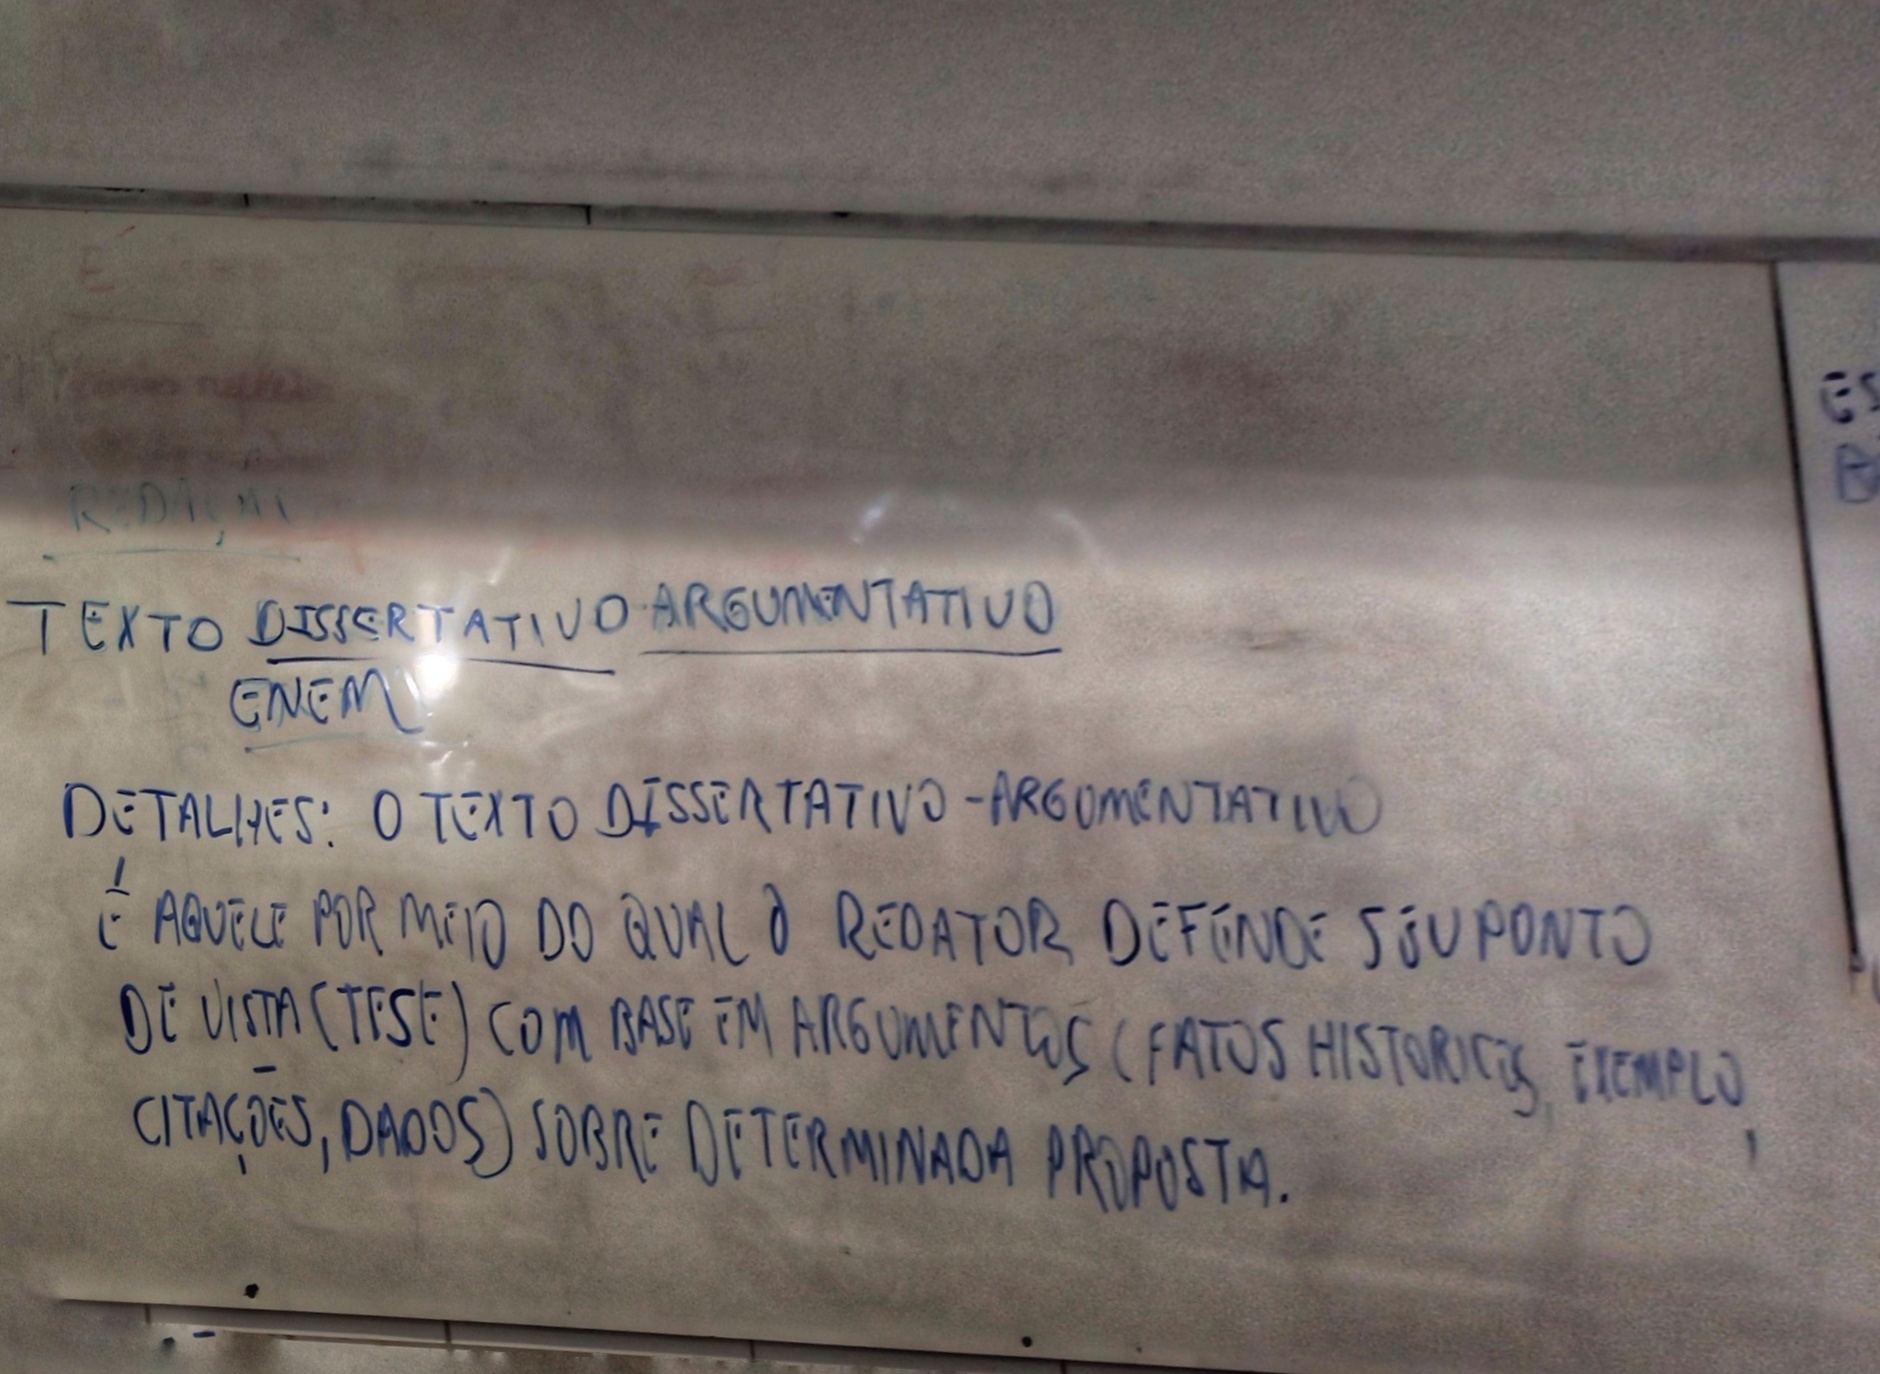 REDAÇÃO
TEXTO DISSERTATIVO-ARGUMENTATIVO
ENEM
DETALHES: O TEXTO DISSERTATIVO-ARGUMENTATIVO
É AQUELE POR MEIO DO QUAL O REDATOR DEFENDE SEU PONTO
DE VISTA (TESE) COM BASE EM ARGUMENTOS (FATOS HISTORICOS, EXEMPLO,
CITAÇÕES, DADOS) SOBRE DETERMINADA PROPOSTA.
ES